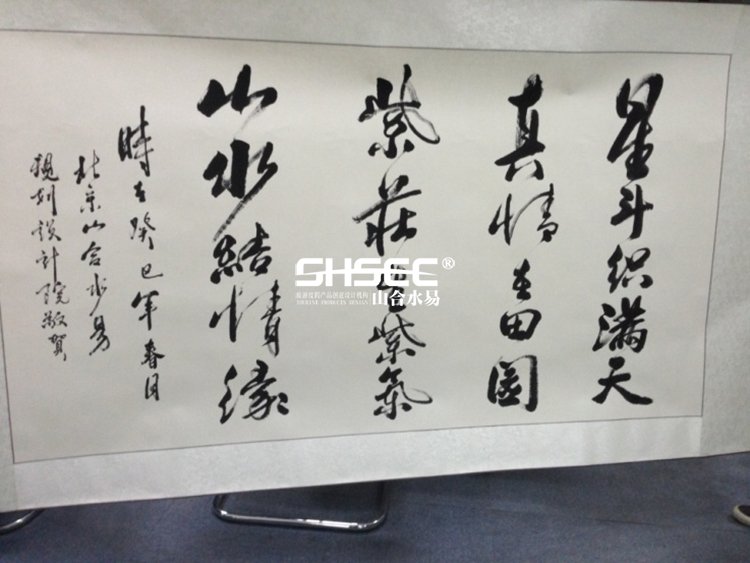 星斗织满天
真情在田園
紫莊紫氣
山水結情緣
時在癸巳年春月
北京山合水易
規划设计院敬贺
SHSEE®
山合水易